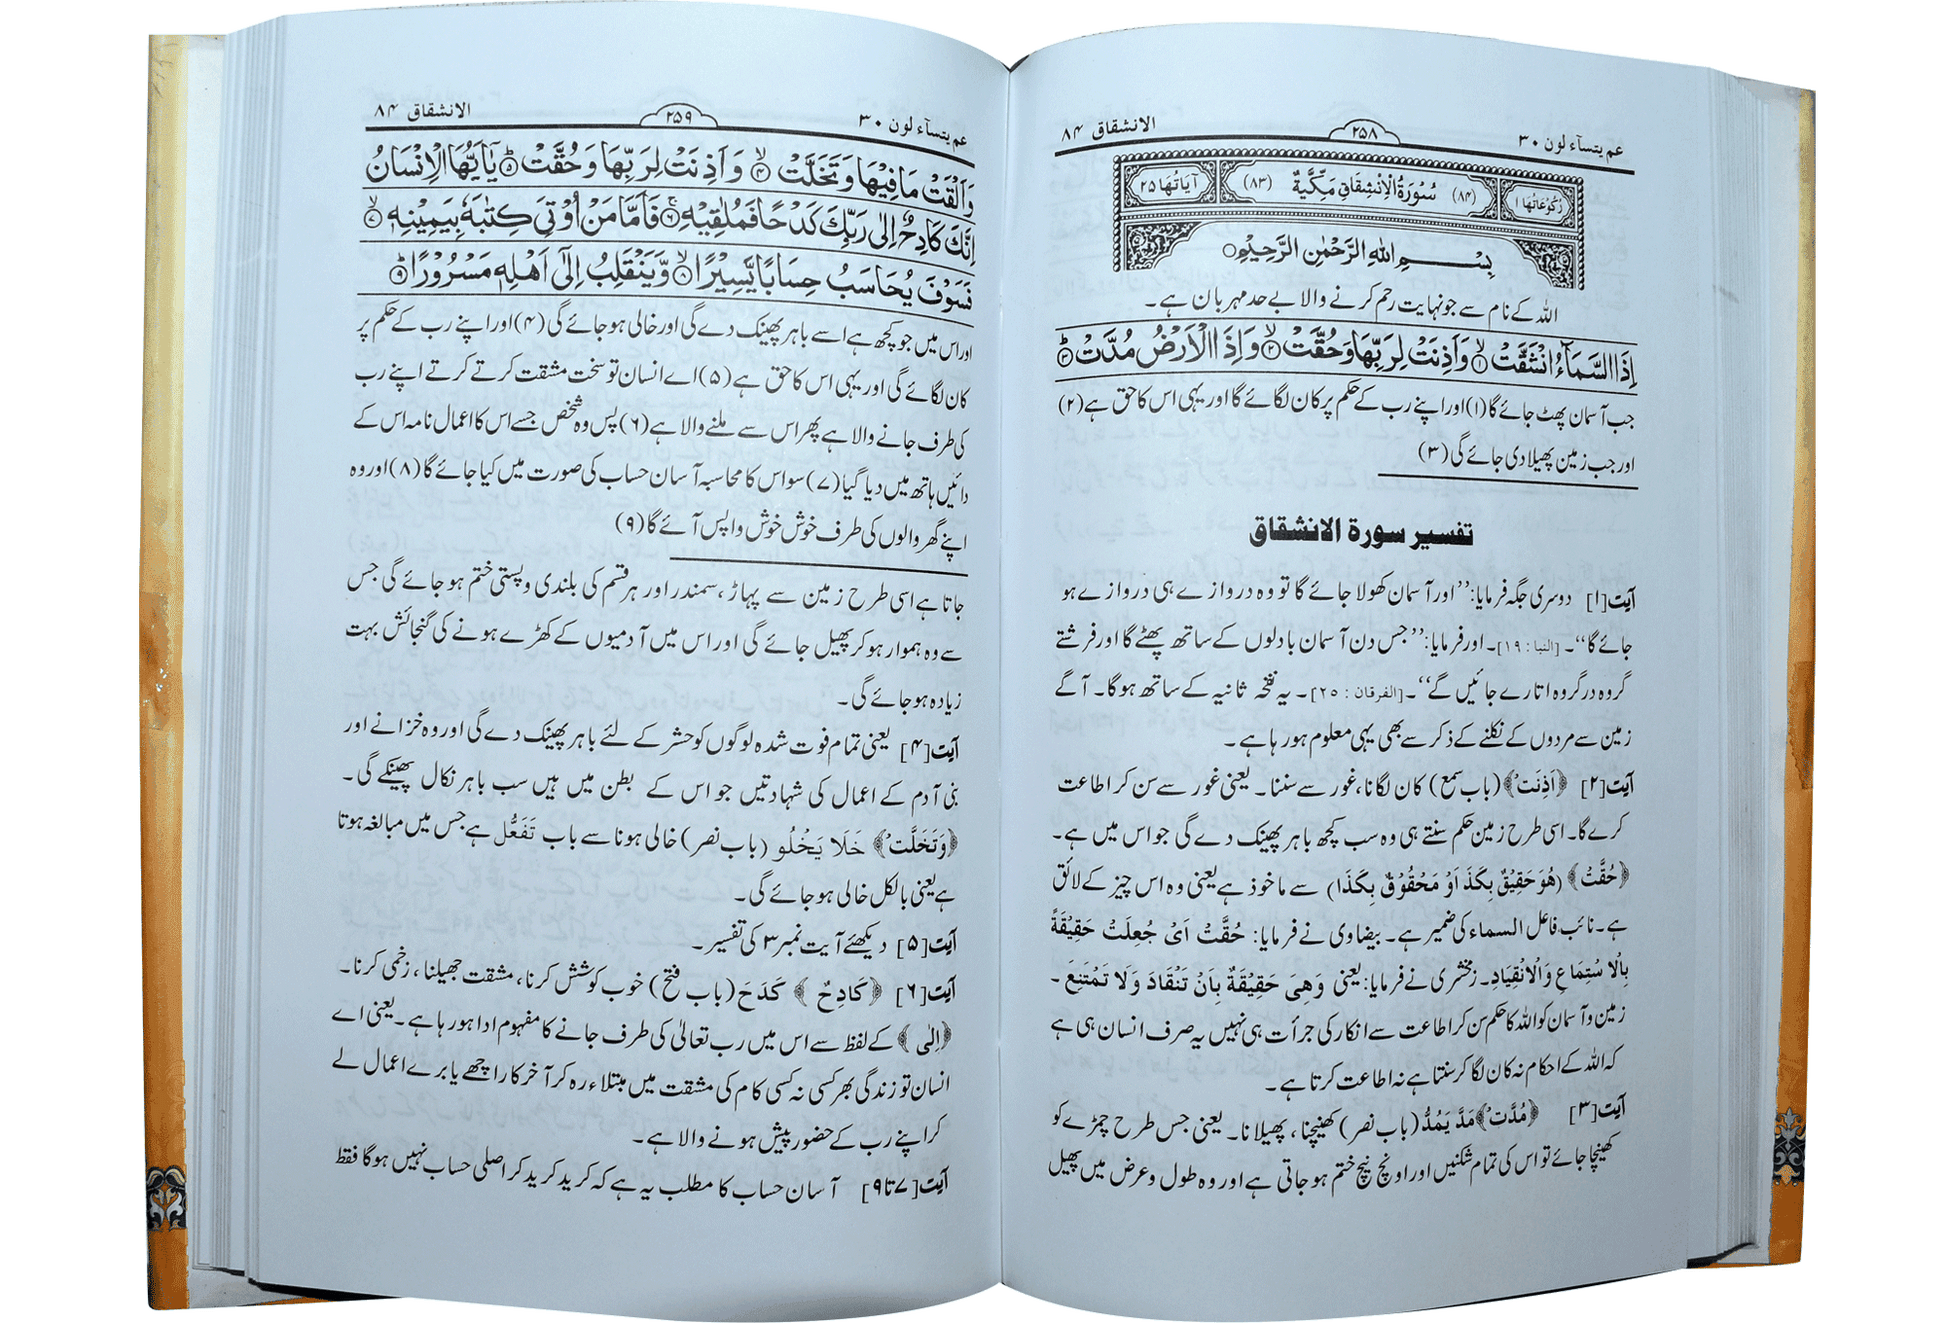 الانشقاق ۸۴
۲۵۸
عم یتسآء لون ۳۰
رُکُوْعَاتُهَا ۱
(۸۴) سُوْرَةُ الْاِنْشِقَاقِ مَكِّيَّةٌ (۸۳)
اٰيَاتُهَا ۲۵
بِسْمِ اللّٰهِ الرَّحْمٰنِ الرَّحِيْمِ
اللہ کے نام سے جو نہایت رحم کرنے والا بے حد مہربان ہے۔
اِذَا السَّمَآءُ انْشَقَّتْ ۙ۱ وَاَذِنَتْ لِرَبِّهَا وَحُقَّتْ ۙ۲ وَاِذَا الْاَرْضُ مُدَّتْ ؕ۳
جب آسمان پھٹ جائے گا (۱) اور اپنے رب کے حکم پر کان لگائے گا اور یہی اس کا حق ہے (۲)
اور جب زمین پھیلا دی جائے گی (۳)
تفسیر سورۃ الانشقاق
آیت [۱] دوسری جگہ فرمایا: ’’اور آسمان کھولا جائے گا تو وہ دروازے ہی دروازے ہو
جائے گا‘‘۔ [النبا : ۱۹]۔ اور فرمایا: ’’جس دن آسمان بادلوں کے ساتھ پھٹے گا اور فرشتے
گروہ در گروہ اتارے جائیں گے‘‘۔ [الفرقان : ۲۵]۔ یہ نفخہ ثانیہ کے ساتھ ہوگا۔ آگے
زمین سے مردوں کے نکلنے کے ذکر سے بھی یہی معلوم ہو رہا ہے۔
آیت [۲] ﴿اَذِنَتْ﴾ (باب سمع) کان لگانا، غور سے سننا۔ یعنی غور سے سن کر اطاعت
کرے گا۔ اسی طرح زمین حکم سنتے ہی وہ سب کچھ باہر پھینک دے گی جو اس میں ہے۔
﴿حُقَّتْ﴾ (هُوَ حَقِيْقٌ بِكَذَا اَوْ مَحْقُوْقٌ بِكَذَا) سے ماخوذ ہے یعنی وہ اس چیز کے لائق
ہے۔ نائب فاعل السماء کی ضمیر ہے۔ بیضاوی نے فرمایا: حُقَّتْ اَىْ جُعِلَتْ حَقِيْقَةً
بِالْاِسْتِمَاعِ وَالْاِنْقِيَادِ۔ زمخشری نے فرمایا: یعنی وَهِىَ حَقِيْقَةٌ بِاَنْ تَنْقَادَ وَلَا تَمْتَنِعَ۔
زمین و آسمان کو اللہ کا حکم سن کر اطاعت سے انکار کی جرأت ہی نہیں یہ صرف انسان ہی ہے
کہ اللہ کے احکام نہ کان لگا کر سنتا ہے نہ اطاعت کرتا ہے۔
آیت [۳] ﴿مُدَّتْ﴾ مَدَّ يَمُدُّ (باب نصر) کھینچنا، پھیلانا۔ یعنی جس طرح چمڑے کو
کھینچا جائے تو اس کی تمام شکنیں اور اونچ نیچ ختم ہو جاتی ہے اور وہ طول و عرض میں پھیل
الانشقاق ۸۴
۲۵۹
عم یتسآء لون ۳۰
وَاَلْقَتْ مَا فِيْهَا وَتَخَلَّتْ ۙ۴ وَاَذِنَتْ لِرَبِّهَا وَحُقَّتْ ؕ۵ يٰۤاَيُّهَا الْاِنْسَانُ
اِنَّكَ كَادِحٌ اِلٰى رَبِّكَ كَدْحًا فَمُلٰقِيْهِ ۚ۶ فَاَمَّا مَنْ اُوْتِىَ كِتٰبَهٗ بِيَمِيْنِهٖ ۙ۷
فَسَوْفَ يُحَاسَبُ حِسَابًا يَّسِيْرًا ۙ۸ وَّيَنْقَلِبُ اِلٰۤى اَهْلِهٖ مَسْرُوْرًا ؕ۹
اور اس میں جو کچھ ہے اسے باہر پھینک دے گی اور خالی ہو جائے گی (۴) اور اپنے رب کے حکم پر
کان لگائے گی اور یہی اس کا حق ہے (۵) اے انسان تو سخت مشقت کرتے کرتے اپنے رب
کی طرف جانے والا ہے پھر اس سے ملنے والا ہے (۶) پس وہ شخص جسے اس کا اعمال نامہ اس کے
دائیں ہاتھ میں دیا گیا (۷) سو اس کا محاسبہ آسان حساب کی صورت میں کیا جائے گا (۸) اور وہ
اپنے گھر والوں کی طرف خوش خوش واپس آئے گا (۹)
جاتا ہے اسی طرح زمین سے پہاڑ، سمندر اور ہر قسم کی بلندی و پستی ختم ہو جائے گی جس
سے وہ ہموار ہو کر پھیل جائے گی اور اس میں آدمیوں کے کھڑے ہونے کی گنجائش بہت
زیادہ ہو جائے گی۔
آیت [۴] یعنی تمام فوت شدہ لوگوں کو حشر کے لئے باہر پھینک دے گی اور وہ خزانے اور
بنی آدم کے اعمال کی شہادتیں جو اس کے بطن میں ہیں سب باہر نکال پھینکے گی۔
﴿وَتَخَلَّتْ﴾ خَلَا يَخْلُو (باب نصر) خالی ہونا سے باب تَفَعُّل ہے جس میں مبالغہ ہوتا
ہے یعنی بالکل خالی ہو جائے گی۔
آیت [۵] دیکھئے آیت نمبر ۳ کی تفسیر۔
آیت [۶] ﴿كَادِحٌ﴾ كَدَحَ (باب فتح) خوب کوشش کرنا، مشقت جھیلنا، زخمی کرنا۔
﴿اِلٰى﴾ کے لفظ سے اس میں رب تعالیٰ کی طرف جانے کا مفہوم ادا ہو رہا ہے۔ یعنی اے
انسان تو زندگی بھر کسی نہ کسی کام کی مشقت میں مبتلاء رہ کر آخر کار اچھے یا برے اعمال لے
کر اپنے رب کے حضور پیش ہونے والا ہے۔
آیت [۷ تا ۹] آسان حساب کا مطلب یہ ہے کہ کرید کرید کر اصلی حساب نہیں ہوگا فقط